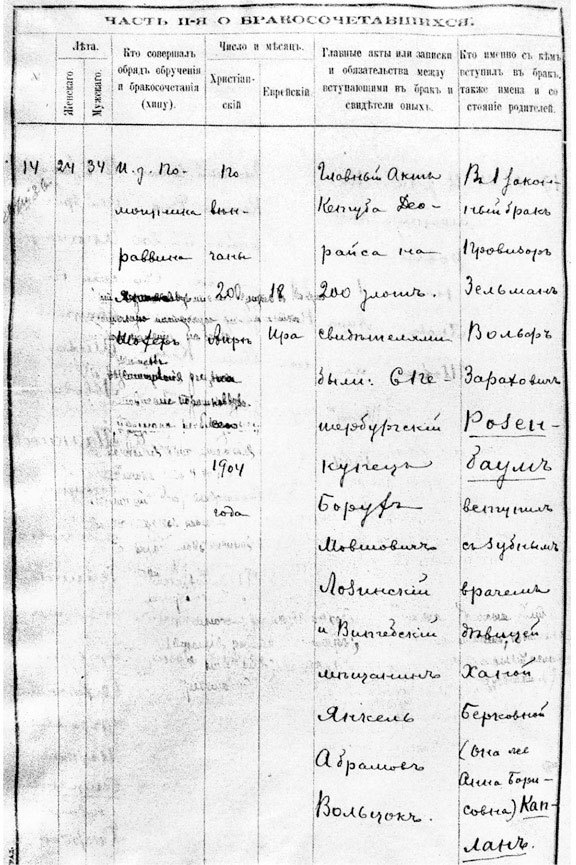 ЧАСТЬ II-Я О БРАКОСОЧЕТАВШИХСЯ.
№
Лѣта.
Женскаго.
Мужскаго.
Кто совершалъ
обрядъ обрученія
и бракосочетанія
(хипу).
Число и мѣсяцъ.
Христіан-
скій
Еврейскій.
Главные акты или записки
и обязательства между
вступающими въ бракъ и
свидѣтели оныхъ.
Кто именно съ кѣмъ
вступилъ въ бракъ,
также имена и со
стояніе родителей.
14
24
34
И. д. По-
мощника
раввина
Шохеръ
По
вѣн-
чаны
20
сего
1904
года
18
Ира
Главный Актъ
Кетуба Део-
райса на
200 злот.
свидѣтелями
были: С Пе-
тербургскій
купецъ
Борухъ
Мовшовичъ
Лозинскій
и Витебскій
мѣщанинъ
Янкель
Абрамовъ
Вольчокъ.
В 1 закон-
ный бракъ
Провизоръ
Зельманъ
Вольфъ
Зараховичъ
Розен-
баумъ
вступилъ
съ зубнымъ
врачемъ
дѣвицей
Ханой
Берковной
(она же
Анна Бори-
совна) Кап-
ланъ.